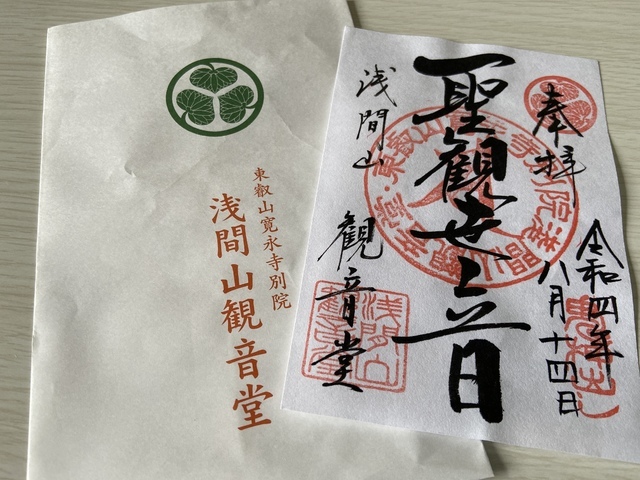 東叡山寛永寺別院
浅間山観音堂
奉拝
令和四年
八月十四日
聖観世音
浅間山
観音堂
浅間山